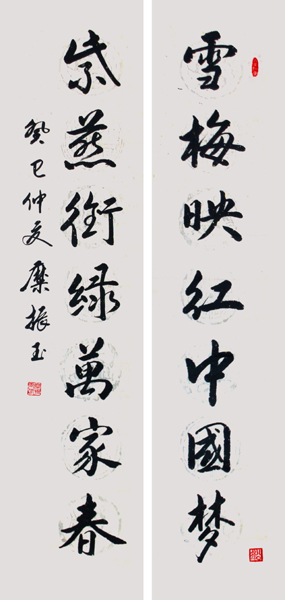 雪梅映红中國梦
紫燕衔绿萬家春
癸巳仲夏糜振玉